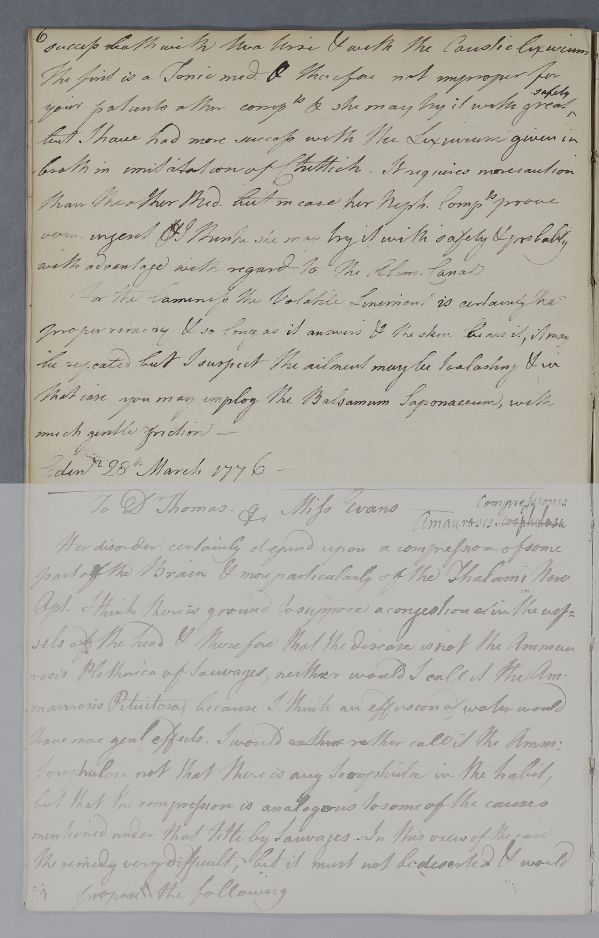 6
success both with Uva Ursi & with the Caustic Lixivium
the first is a Tonic med. & therefore not improper for
your patients other compts & she may try it with great safety
but I have had more success with the Lixivium given in
broth in imitation of Chittick. It requires more caution
than the other Med. but in case her Neph. Compts proove
very urgent I think she may try it with safety & probably
with advantage with regard to the Alim. Canal
For the Lameness the Volatile Liniment is certainly the
proper remedy & so long as it answers & the skin bears it, it may
be repeated but I suspect the ailment may be too lasting & in
that case you may employ the Balsamum Saponaceum, with
much gentle friction —
Edinr 28th March 1776 —
To Dr Thomas. & Miss Evans
Compressionis
Amaurosis Scrophulosa
Her disorder certainly depend upon a compression of some
part of the Brain & more particularly of the Thalami Nerv.
Opt. I think there is ground to suppose a congestion in the ves=
sels of the head & therefore that the disease is not the Ammau
rosis Plethorica of Sauvages, neither would I call it the Am-
maurosis Pituitosa because I think an effusion of water would
have more genl effects. I would rather call it the Amm:
Scrophulosa not that there is any Scrophula in the habit,
but that the compression is analogous to some of the causes
mentioned under that title by Sauvages. In this view of the case
the remedy very difficult, but it must not be deserted & would
propose the following